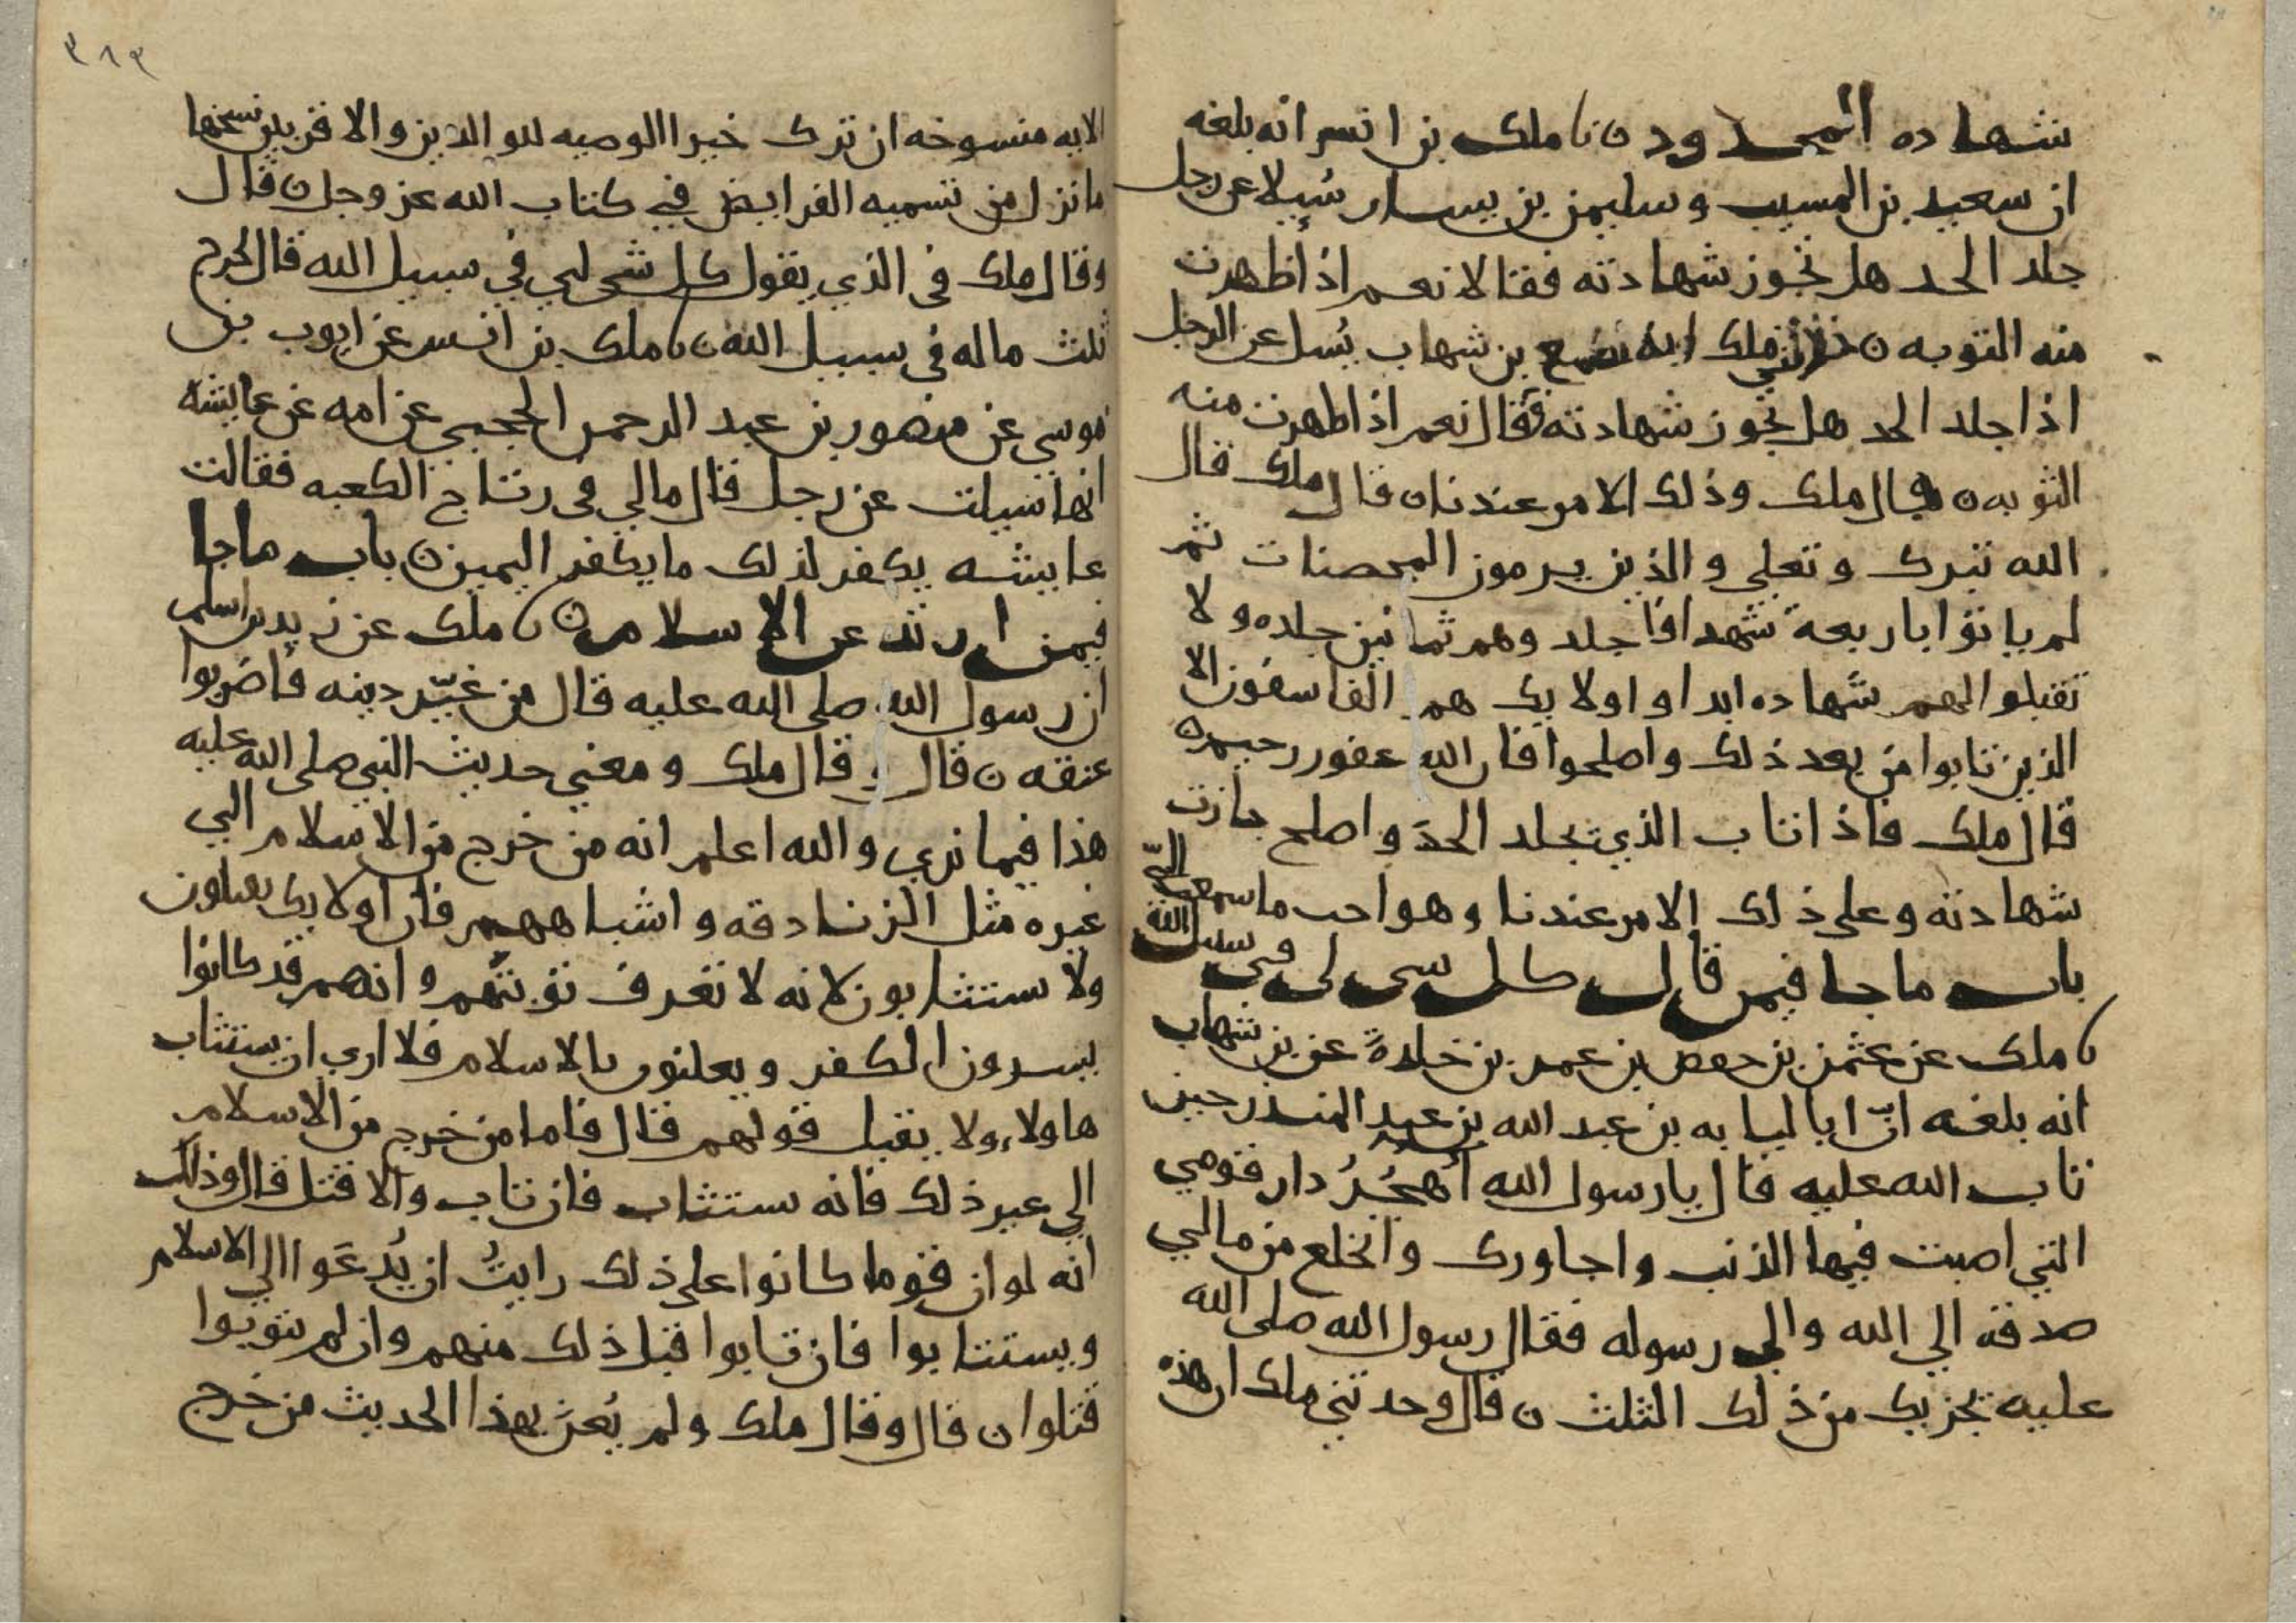 شهاده المحدود ن نا ملك بن انس انه بلغه
ان سعيد بن المسيب وسليمن بن يسار سُيلا عن رجل
جلد الحد هل تجوز شهادته فقالا نعم اذا ظهرت
منه التوبه ن ملك بن شهاب يُسل عن الرجل
اذا جلد الحد هل تجوز شهادته فقال نعم اذا ظهرت منه
التوبه ن قال ملك وذلك الامر عندنا ن قال ملك قال
الله تبرك وتعلي والذين يرمون المحصنات ثم
لم ياتوا باربعة شهدا فاجلدوهم ثمانين جلده ولا
تقبلوا لهم شهاده ابدا واولايك هم الفاسقون الا
الذين تابوا من بعد ذلك واصلحوا فان الله غفور رحيم ن
قال ملك فاذا تاب الذي يجلد الحدَ واصلح جازت
شهادته وعلى ذلك الامر عندنا وهو احب ما سمعت اليّ
باب ما جا فيمن قال كل شي لي في سبيل الله
نا ملك عن عثمن بن حفص بن عمر بن خلدةَ عن بن شهاب
انه بلغه انّ ابا لبابه بن عبد الله بن عبد المنذر حين
تاب الله عليه قال يا رسول الله أهجُرُ دار قومي
التي اصبت فيها الذنب واجاورك وانخلع من مالي
صدقه الي الله والي رسوله فقال رسول الله صلى الله
عليه تجزيك من ذلك الثلث ن قال وحدثني ملك ان هذه
٣٨٣
الايه منسوخه ان ترك خيرا الوصيه للوالدين والاقربين نسخها
ما نزل من تسميه الفرايض في كتاب الله عز وجل ن قال
وقال ملك في الذي يقول كل شي لي في سبيل الله قال يخرج
ثلث ماله في سبيل الله ن نا ملك بن انس عن ايوب بن
موسي عن منصور بن عبد الرحمن الحجبي عن امه عن عايشه
انها سيلت عن رجل قال مالي في رتاج الكعبه فقالت
عايشه يكفر لذلك ما يكفر اليمين ن باب ما جا
فيمن ارتد عن الاسلام ن نا ملك عن زيد بن اسلم
ان رسول الله صلى الله عليه قال من غيّر دينه فاضربوا
عنقه ن قال وقال ملك ومعني حديث النبي صلى الله عليه
هذا فيما نري والله اعلم انه من خرج من الاسلام الي
غيره مثل الزنادقه واشباههم فان اولايك يقتلون
ولا يستتابون لانه لا تعرف توبتهم وانهم قد كانوا
يسرون الكفر ويعلنون بالاسلام فلا اري ان يستتاب
هاولاء ولا يقبل قولهم قال فاما من خرج من الاسلام
الي غير ذلك فانه يستتاب فان تاب والا قتل قال وذلك
انه لو ان قوما كانوا على ذلك رايتُ ان يُدعَوا الي الاسلام
ويستتابوا فان تابوا قبل ذلك منهم وان لم يتوبوا
قتلوا ن قال وقال ملك ولم يُعنَ بهذا الحديث من خرج